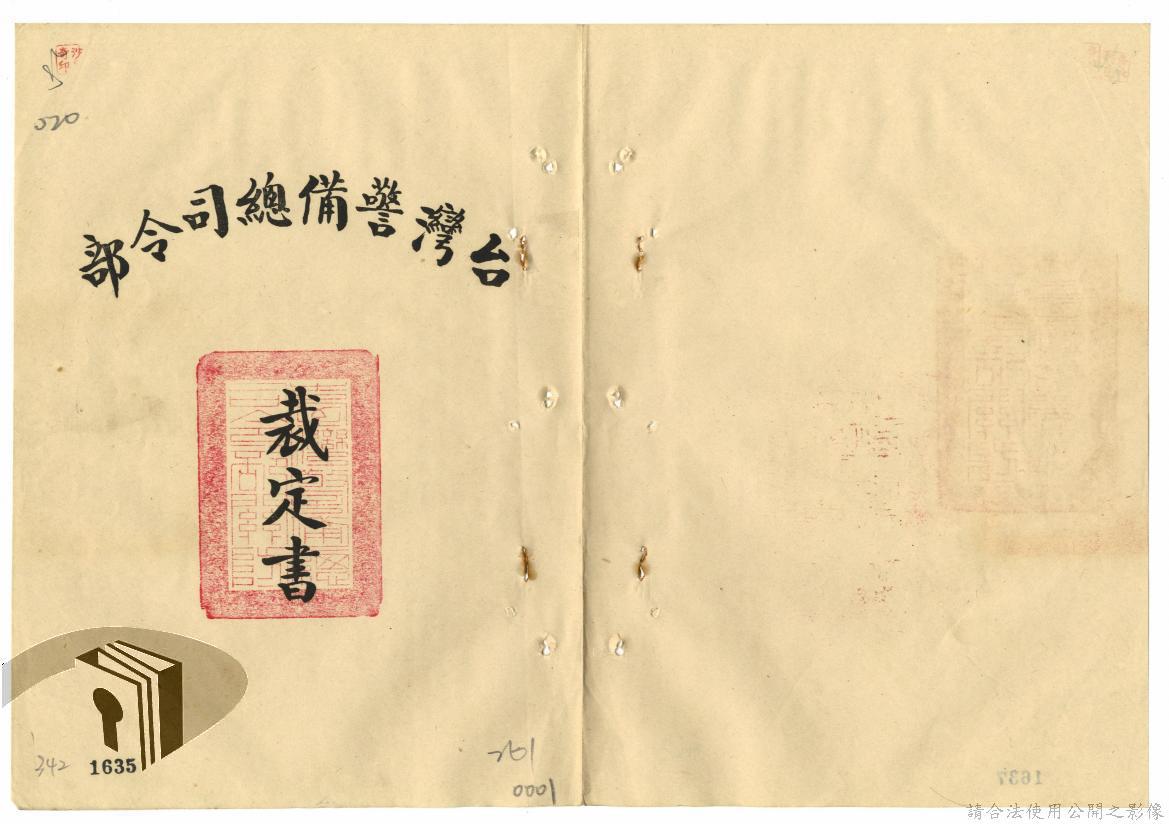 020
台灣警備總司令部
裁定書
342
1635
0001
1637
請合法使用公開之影像